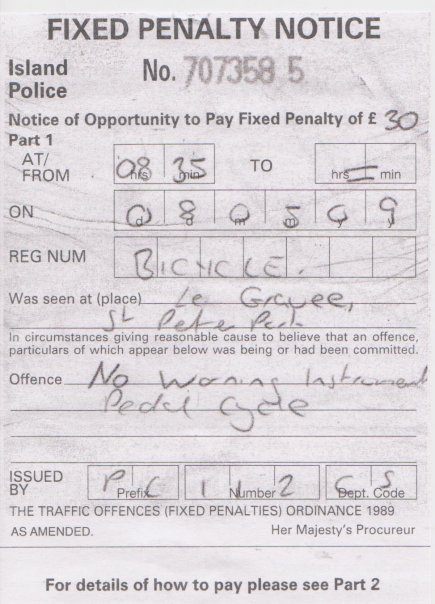 FIXED PENALTY NOTICE
Island Police No. 707358 5
Notice of Opportunity to Pay Fixed Penalty of £ 30
Part 1
AT/FROM 08 hrs 35 min TO hrs — min
ON 08 05 09
REG NUM BICYCLE.
Was seen at (place) Le Gravee,
St Peter Port
In circumstances giving reasonable cause to believe that an offence,
particulars of which appear below was being or had been committed.
Offence No Warning Instrument
Pedal Cycle
ISSUED BY PC Prefix 112 Number CS Dept. Code
THE TRAFFIC OFFENCES (FIXED PENALTIES) ORDINANCE 1989
AS AMENDED. Her Majesty's Procureur
For details of how to pay please see Part 2